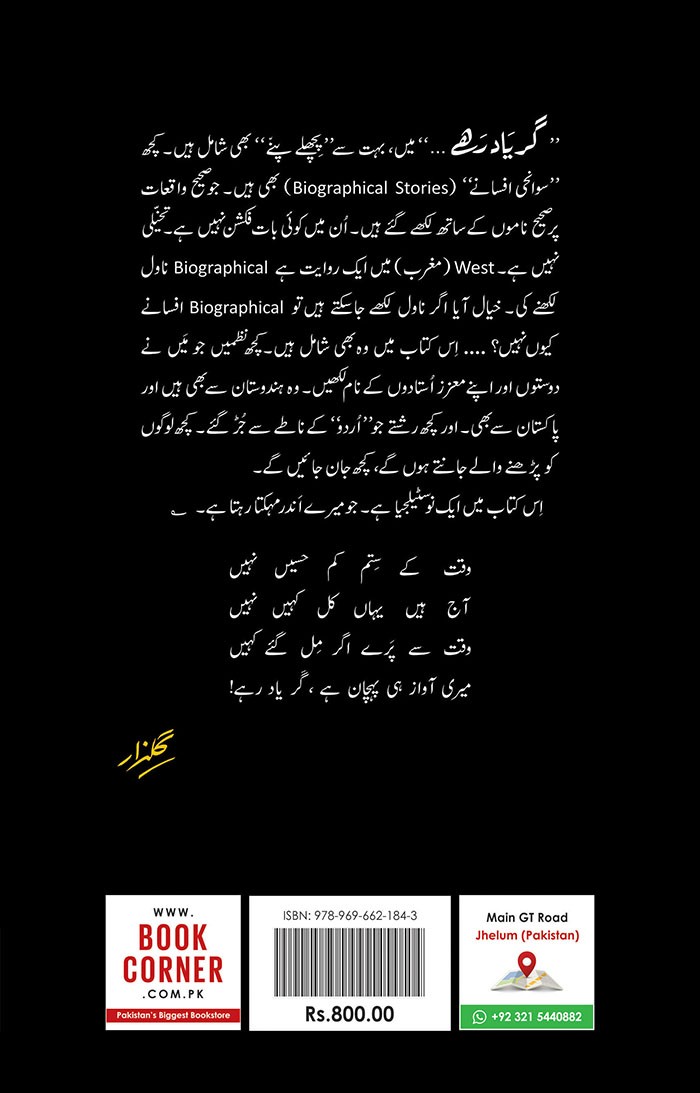 ”گر یاد رہے ...“ میں، بہت سے ”پچھلے پنّے“ بھی شامل ہیں۔ کچھ
”سوانحی افسانے“ (Biographical Stories) بھی ہیں۔ جو صحیح واقعات
پر صحیح ناموں کے ساتھ لکھے گئے ہیں۔ اُن میں کوئی بات فکشن نہیں ہے۔ تخیّلی
نہیں ہے۔ West (مغرب) میں ایک روایت ہے Biographical ناول
لکھنے کی۔ خیال آیا اگر ناول لکھے جاسکتے ہیں تو Biographical افسانے
کیوں نہیں؟ .... اِس کتاب میں وہ بھی شامل ہیں۔ کچھ نظمیں جو مَیں نے
دوستوں اور اپنے معزز اُستادوں کے نام لکھیں۔ وہ ہندوستان سے بھی ہیں اور
پاکستان سے بھی۔ اور کچھ رشتے جو ”اُردو“ کے ناطے سے جُڑ گئے۔ کچھ لوگوں
کو پڑھنے والے جانتے ہوں گے، کچھ جان جائیں گے۔
اِس کتاب میں ایک نوسٹیلجیا ہے۔ جو میرے اَندر مہکتا رہتا ہے۔ ؎
وقت کے سِتم کم حسیں نہیں
آج ہیں یہاں کل کہیں نہیں
وقت سے پَرے اگر مِل گئے کہیں
میری آواز ہی پہچان ہے ، گَر یاد رہے!
گلزار
WWW.
BOOK
CORNER
.COM.PK
Pakistan's Biggest Bookstore
ISBN: 978-969-662-184-3
Rs.800.00
Main GT Road
Jhelum (Pakistan)
+92 321 5440882